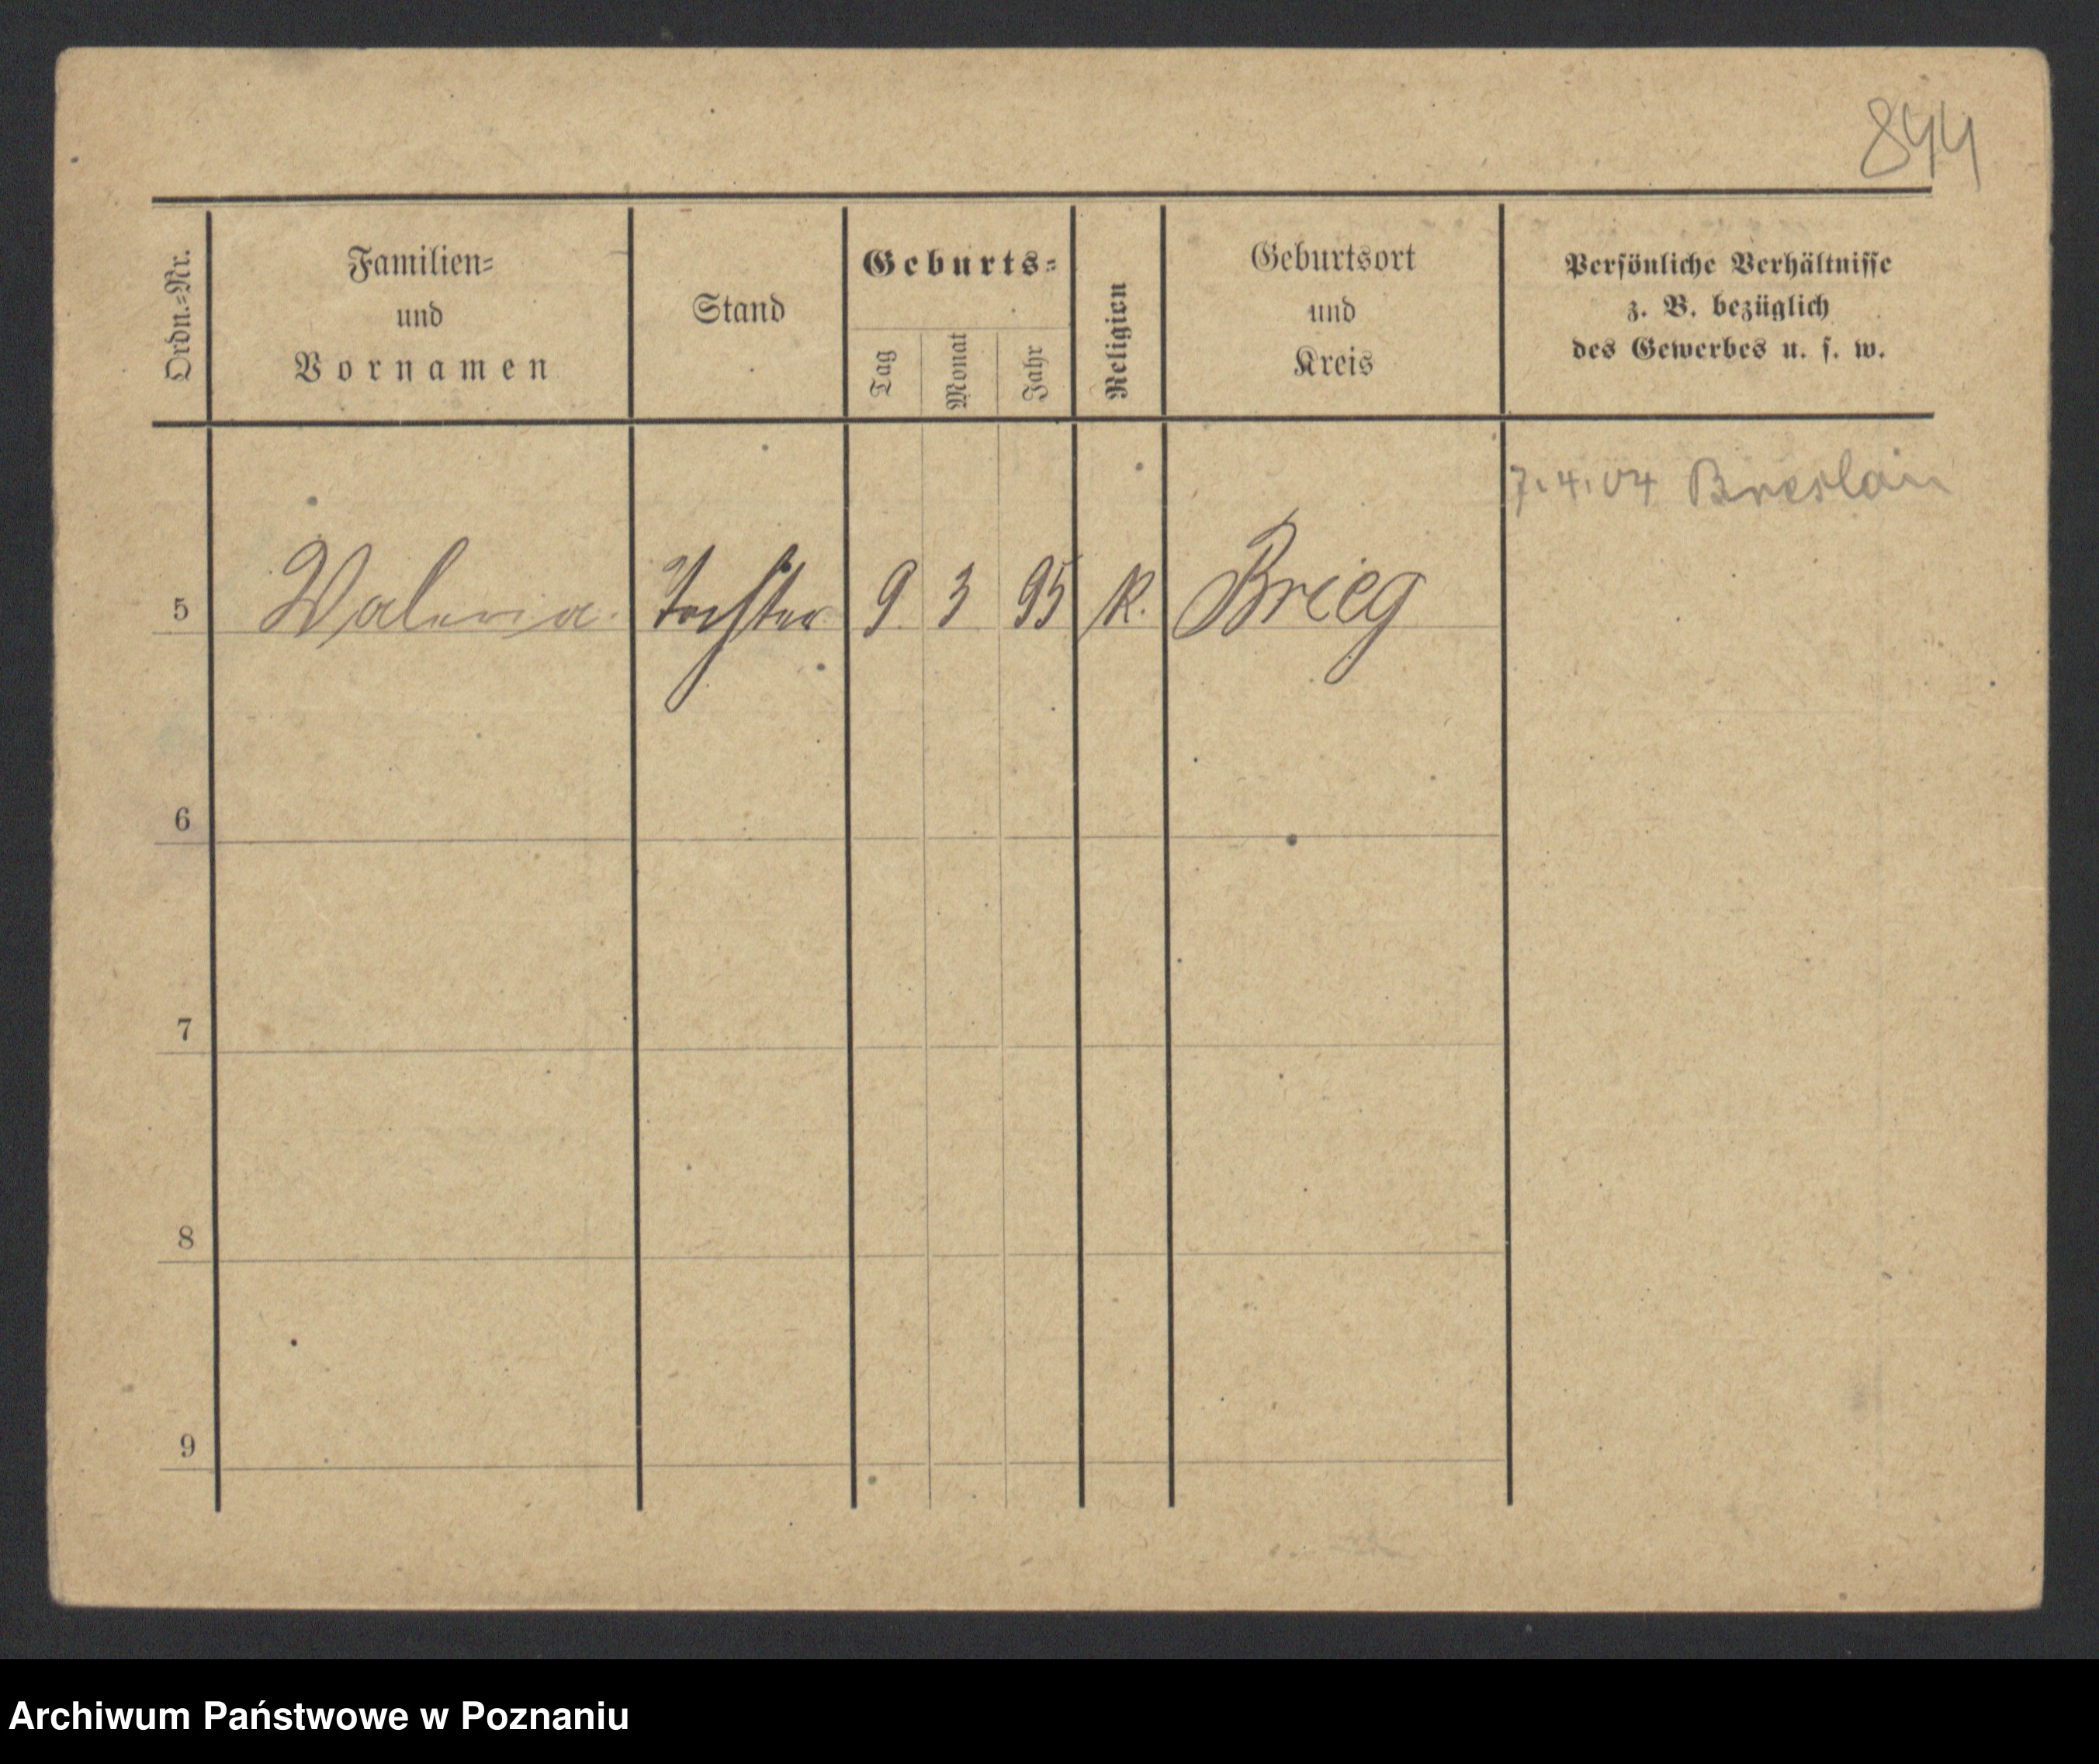 844
Ordn.=Nr.
Familien=
und
Vornamen
Stand
Geburts=
Tag
Monat
Jahr
Religion
Geburtsort
und
Kreis
Persönliche Verhältnisse
z. B. bezüglich
des Gewerbes u. s. w.
7.4.04 Breslau
5 Waleria Tochter 9 3 95 K. Brieg
6
7
8
9
Archiwum Państwowe w Poznaniu